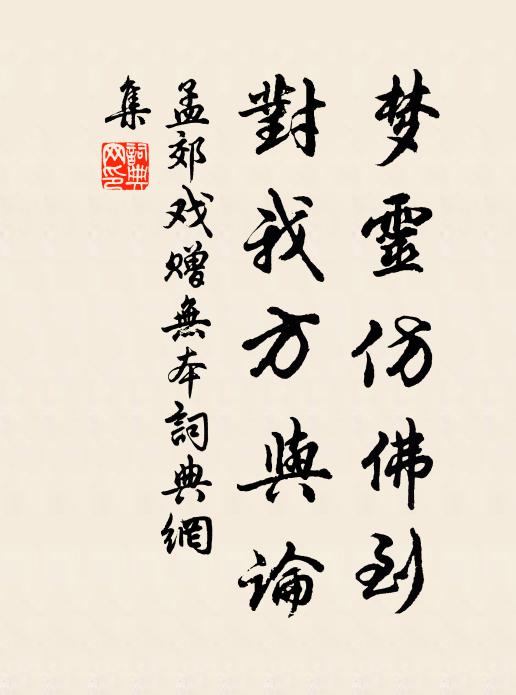 梦靈仿佛到
對我方與論
孟郊戏赠無本詞典網
集
詞典網印